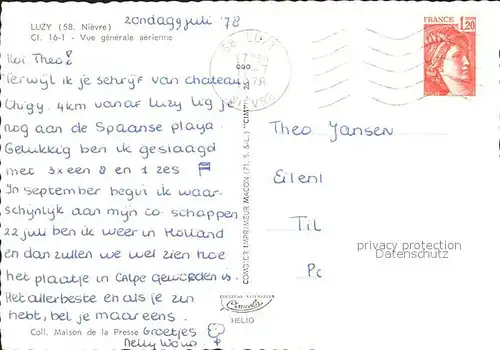 LUZY (58. Nièvre)
Cl. 16-1 - Vue générale aérienne
zondag 9 juli '78
Hoi Theo!
Terwijl ik je schrijf van chateau
Chigy. 4km vanaf Luzy lig je
nog aan de Spaanse playa.
Gelukkig ben ik geslaagd
met 3x een 8 en 1 zes
In september begin ik waar-
schijnlijk aan mijn co. schappen
22 juli ben ik weer in Holland
en dan zullen we wel zien hoe
het plaatje in CALPE geworden is.
Het allerbeste en als je zin
hebt, bel je maar eens.
Groetjes
Nelly
Coll. Maison de la Presse
COMBIER IMPRIMEUR MACON (71. S.-&-L.) "CIM"
58 LUZY
NIEVRE
1978
FRANCE
1,20
Theo Jansen
Til
privacy protection
Datenschutz
COULEURS NATURELLES
HELIO